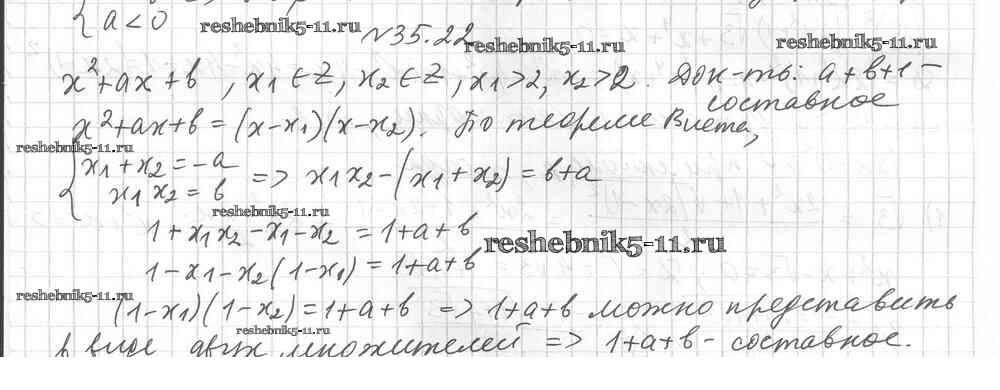 { a < 0 reshebnik5-11.ru
№35.22 reshebnik5-11.ru reshebnik5-11.ru
x²+ax+b , x₁∈Z, x₂∈Z, x₁>2, x₂>2. Док-ть: a+b+1 –
составное
x²+ax+b = (x-x₁)(x-x₂). По теореме Виета,
reshebnik5-11.ru
{ x₁+x₂ = -a
x₁x₂ = b => x₁x₂-(x₁+x₂) = b+a
reshebnik5-11.ru
1+x₁x₂-x₁-x₂ = 1+a+b
reshebnik5-11.ru
1-x₁-x₂(1-x₁) = 1+a+b
reshebnik5-11.ru
(1-x₁)(1-x₂) = 1+a+b => 1+a+b можно представить
reshebnik5-11.ru
в виде двух множителей => 1+a+b - составное.